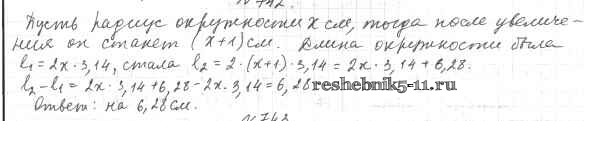 N 742.
Пусть радиус окружности x см, тогда после увеличе-
ния он станет (x+1) см. Длина окружности была
l₁ = 2x · 3,14, стала l₂ = 2 · (x+1) · 3,14 = 2x · 3,14 + 6,28.
l₂ - l₁ = 2x · 3,14 + 6,28 - 2x · 3,14 = 6,28
reshebnik5-11.ru
Ответ: на 6,28 см.
N 743